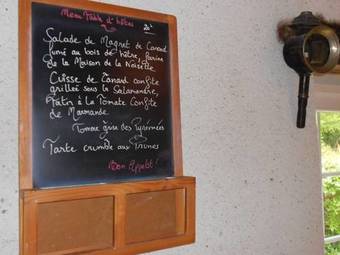 Menu Table d'hôtes
20€
Salade de Magret de Canard
fumé au bois de hêtre, Farine
de la Maison de la Noisette
Cuisse de Canard confite
grillée sous la Salamandre,
à la Tomate Confite
de Marmande
Tomme grise des Pyrénées
Tarte crumble aux Prunes
Bon Appétit!